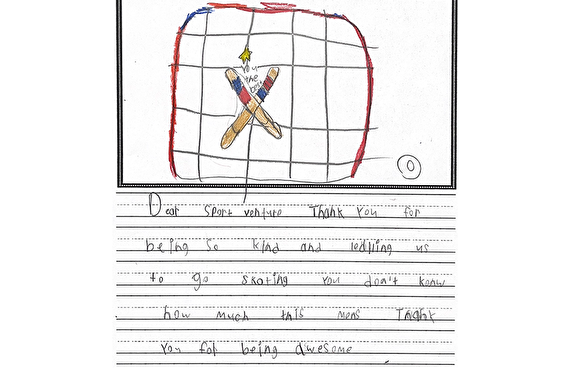 You
the
Dear Sport venture Thank You for
being so kind and ledliing us
to go skating you don't konw
how much this mens Thank
You for being awesome